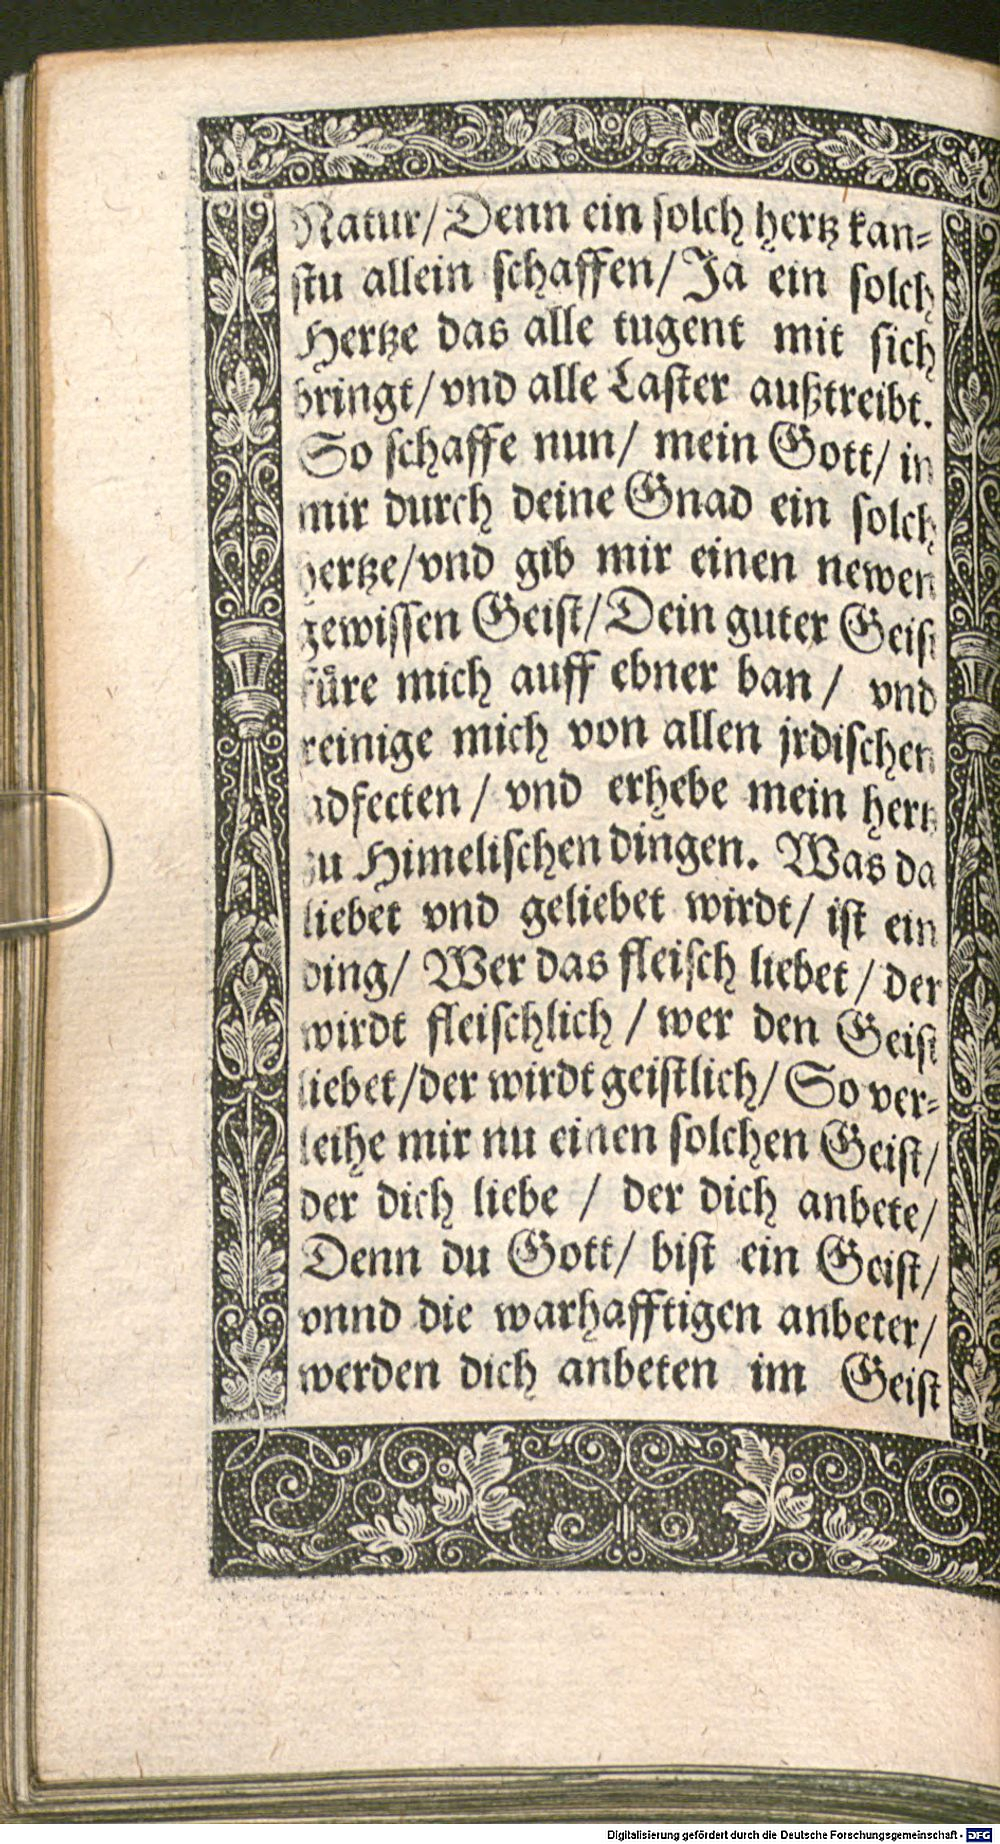 Natur/ Denn ein solch hertz kan=
stu allein schaffen/ Ja ein solch
Hertze das alle tugent mit sich
bringt/ vnd alle Laster außtreibt.
So schaffe nun/ mein Gott/ in
mir durch deine Gnad ein solch
hertze/ vnd gib mir einen newen
gewissen Geist/ Dein guter Geist
fuͤre mich auff ebner ban/ vnd
reinige mich von allen jrdischen
adfecten/ vnd erhebe mein hertz
zu Himelischen dingen. Was da
liebet vnd geliebet wirdt/ ist ein
ding/ Wer das fleisch liebet/ der
wirdt fleischlich/ wer den Geist
liebet/ der wirdt geistlich/ So ver=
leihe mir nu einen solchen Geist/
der dich liebe/ der dich anbete/
Denn du Gott/ bist ein Geist/
vnnd die warhafftigen anbeter/
werden dich anbeten im Geist
Digitalisierung gefördert durch die Deutsche Forschungsgemeinschaft - DFG